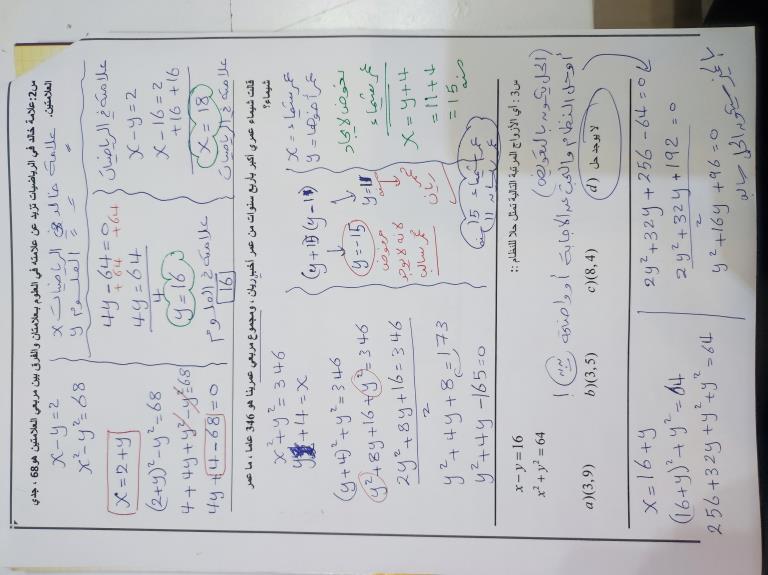 س2: علامة خالد في الرياضيات تزيد عن علامته في العلوم بعلامتان والفرق بين مربعي العلامتين هو 68 ، جدي
العلامتين.
علامة خالد في الرياضيات x
= = العلوم y
x - y = 2
x² - y² = 68
x = 2 + y
(2+y)² - y² = 68
4 + 4y + y² - y² = 68
4y + 4 - 68 = 0
4y - 64 = 0
+64 +64
4y = 64
4
y = 16
علامته في العلوم
16
علامته في الرياضيات
x - y = 2
x - 16 = 2
+16 +16
x = 18
علامته في الرياضيات
قالت شيماء عمري اكبر باربع سنوات من عمر أختي ريان ، ومجموع مربعي عمرينا هو 346 عاما ، ما عمر
شيماء؟
x² + y² = 346
y + 4 = x
(y+4)² + y² = 346
y² + 8y + 16 + y² = 346
2y² + 8y + 16 = 346
2
y² + 4y + 8 = 173
y² + 4y - 165 = 0
(y+15)(y-11)
y = -15
y = 11
عمر سالب
عمر ريان
x = عمر شيماء
y = عمر
عمر شيماء
x = y + 4
= 11 + 4
= 15
سنة
عمر شيماء 15
س3: أي الأزواج المرتبة التالية تمثل حلا للنظام ::
x - y = 16
x² + y² = 64
أوجد النظام
(الحل يكون بالتعويض)
a)(3,9)
b)(3,5)
c)(8,4)
d) لا يوجد حل
x = 16 + y
(16+y)² + y² = 64
256 + 32y + y² + y² = 64
2y² + 32y + 256 - 64 = 0
2y² + 32y + 192 = 0
2
y² + 16y + 96 = 0